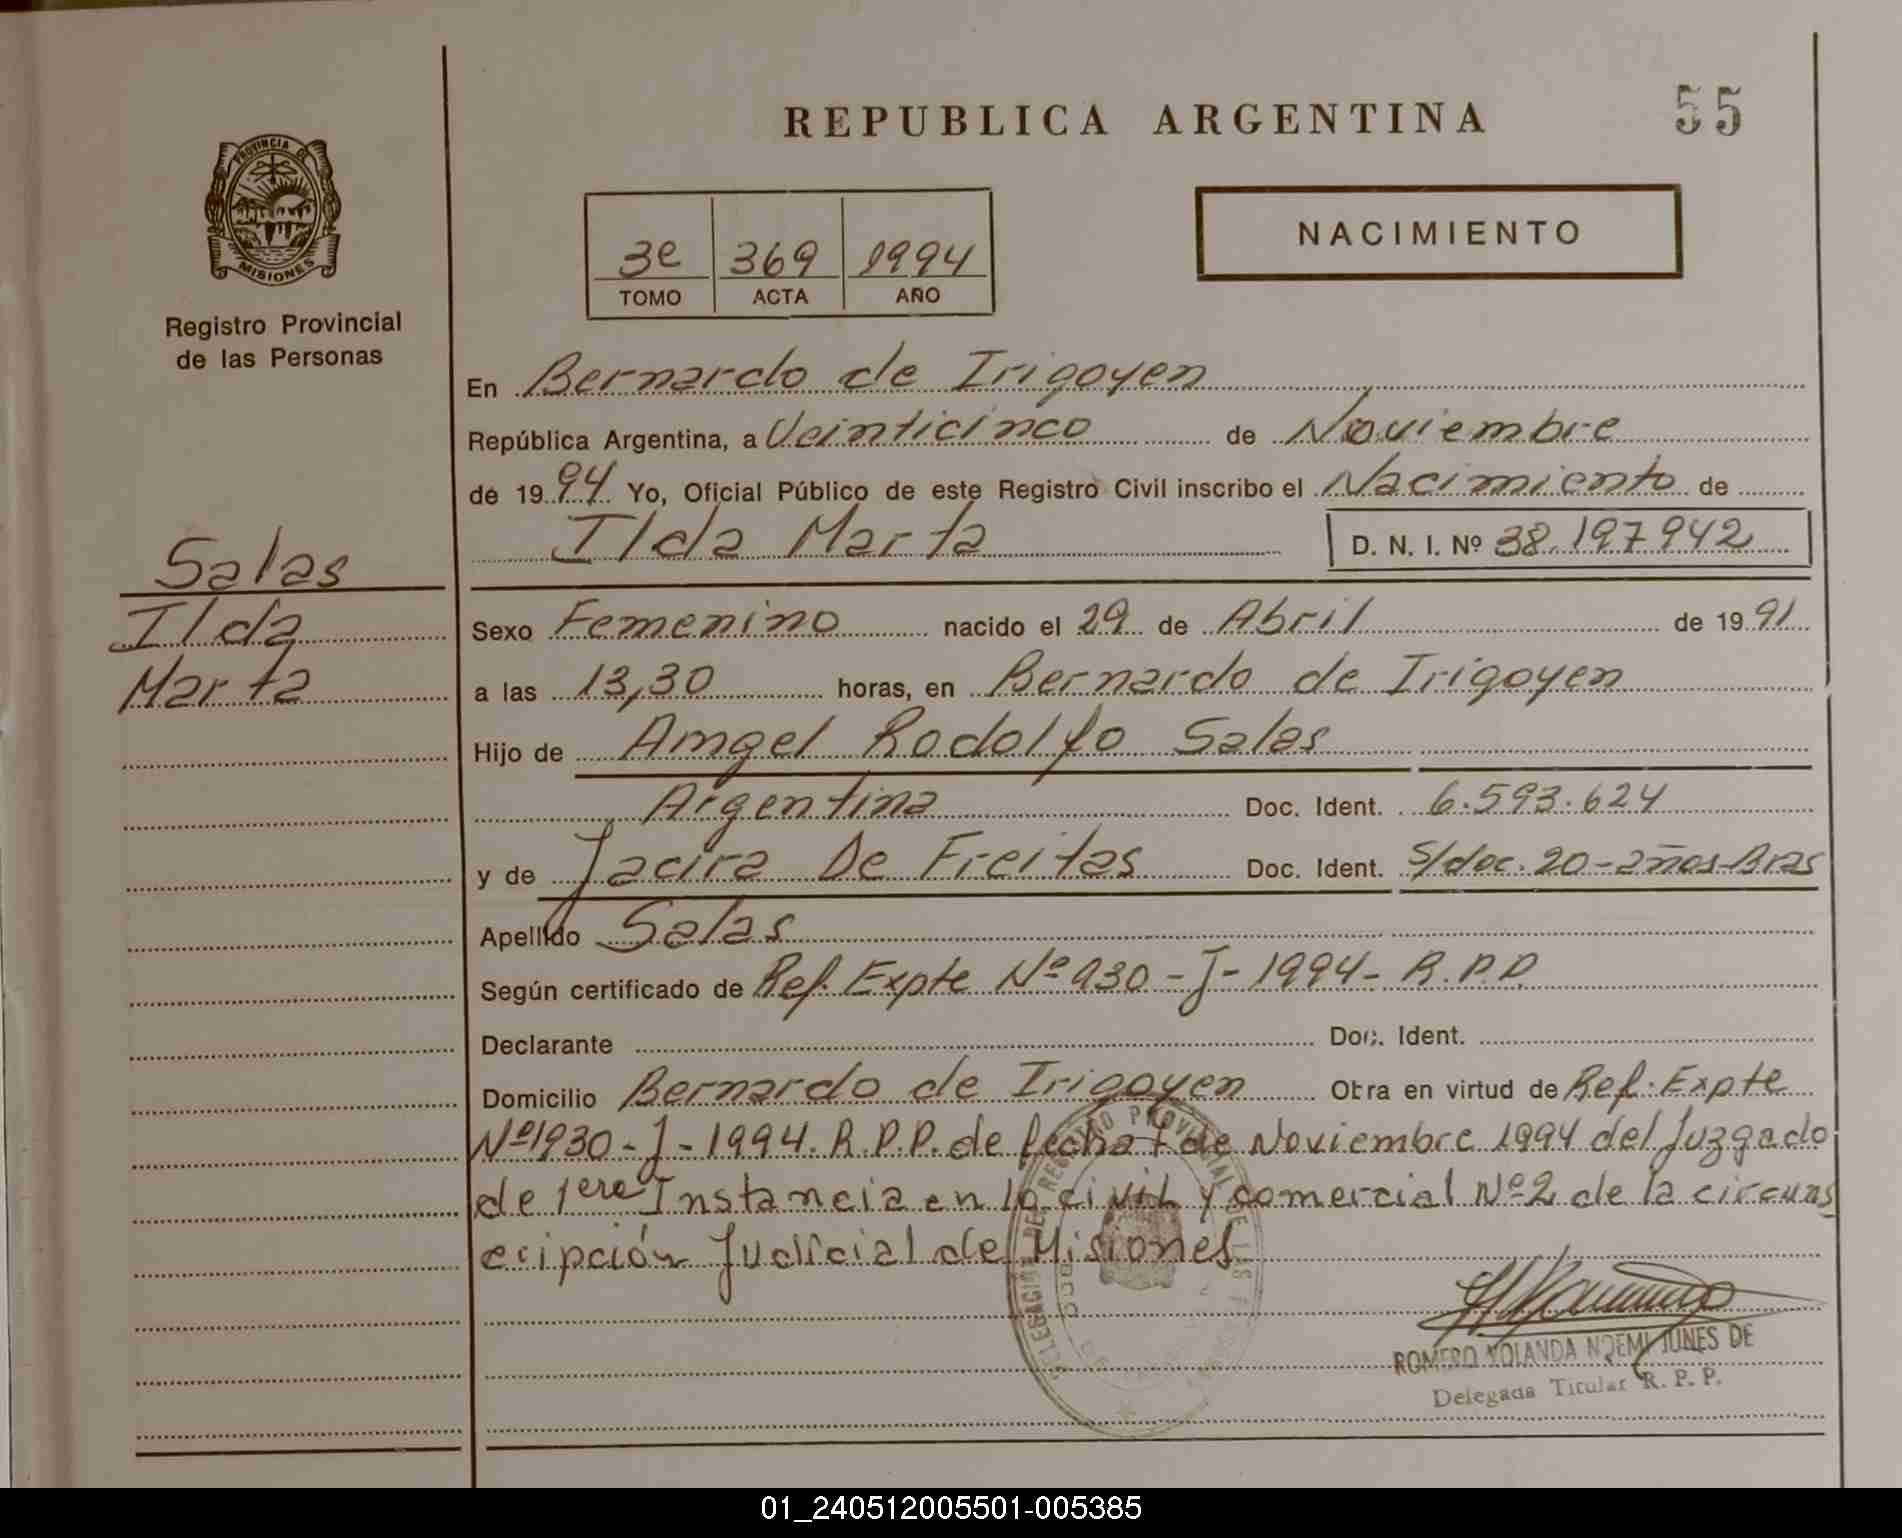 REPUBLICA ARGENTINA
55
PROVINCIA DE
MISIONES
Registro Provincial
de las Personas
3e 369 1994
TOMO ACTA AÑO
NACIMIENTO
En Bernardo de Irigoyen
República Argentina, a Veinticinco de Noviembre
de 1994 Yo, Oficial Público de este Registro Civil inscribo el Nacimiento de
Ilda Marta D. N. I. Nº 38.197942
Salas
Ilda
Marta
Sexo Femenino nacido el 29 de Abril de 1991
a las 13,30 horas, en Bernardo de Irigoyen
Hijo de Amgel Rodolfo Salas
Argentina Doc. Ident. 6.593.624
y de Jacira De Freitas Doc. Ident. S/doc. 20-años-Bras
Apellido Salas
Según certificado de Ref. Expte Nº 930-J-1994- R.P.P.
Declarante Doc. Ident.
Domicilio Bernardo de Irigoyen Obra en virtud de Ref: Expte
Nº1930-J-1994. R.P.P. de fecha 1 de Noviembre 1994 del Juzgado
de 1era Instancia en lo civil y comercial Nº2 de la circuns
cripción Judicial de Misiones
DELEGACION DE REGISTRO PROVINCIAL DE LAS
ROMERO YOLANDA NOEMI JUNES DE
Delegada Titular R. P. P.
01_240512005501-005385